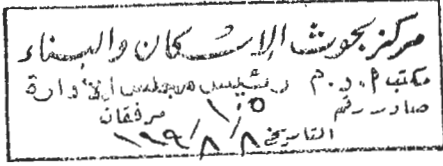 مركز بحوث الإسكان والبناء
مكتب أ. د. م رئيس مجلس الإدارة
صادر رقم ١٠٥ مرفقان
التاريخ ٨/٨/